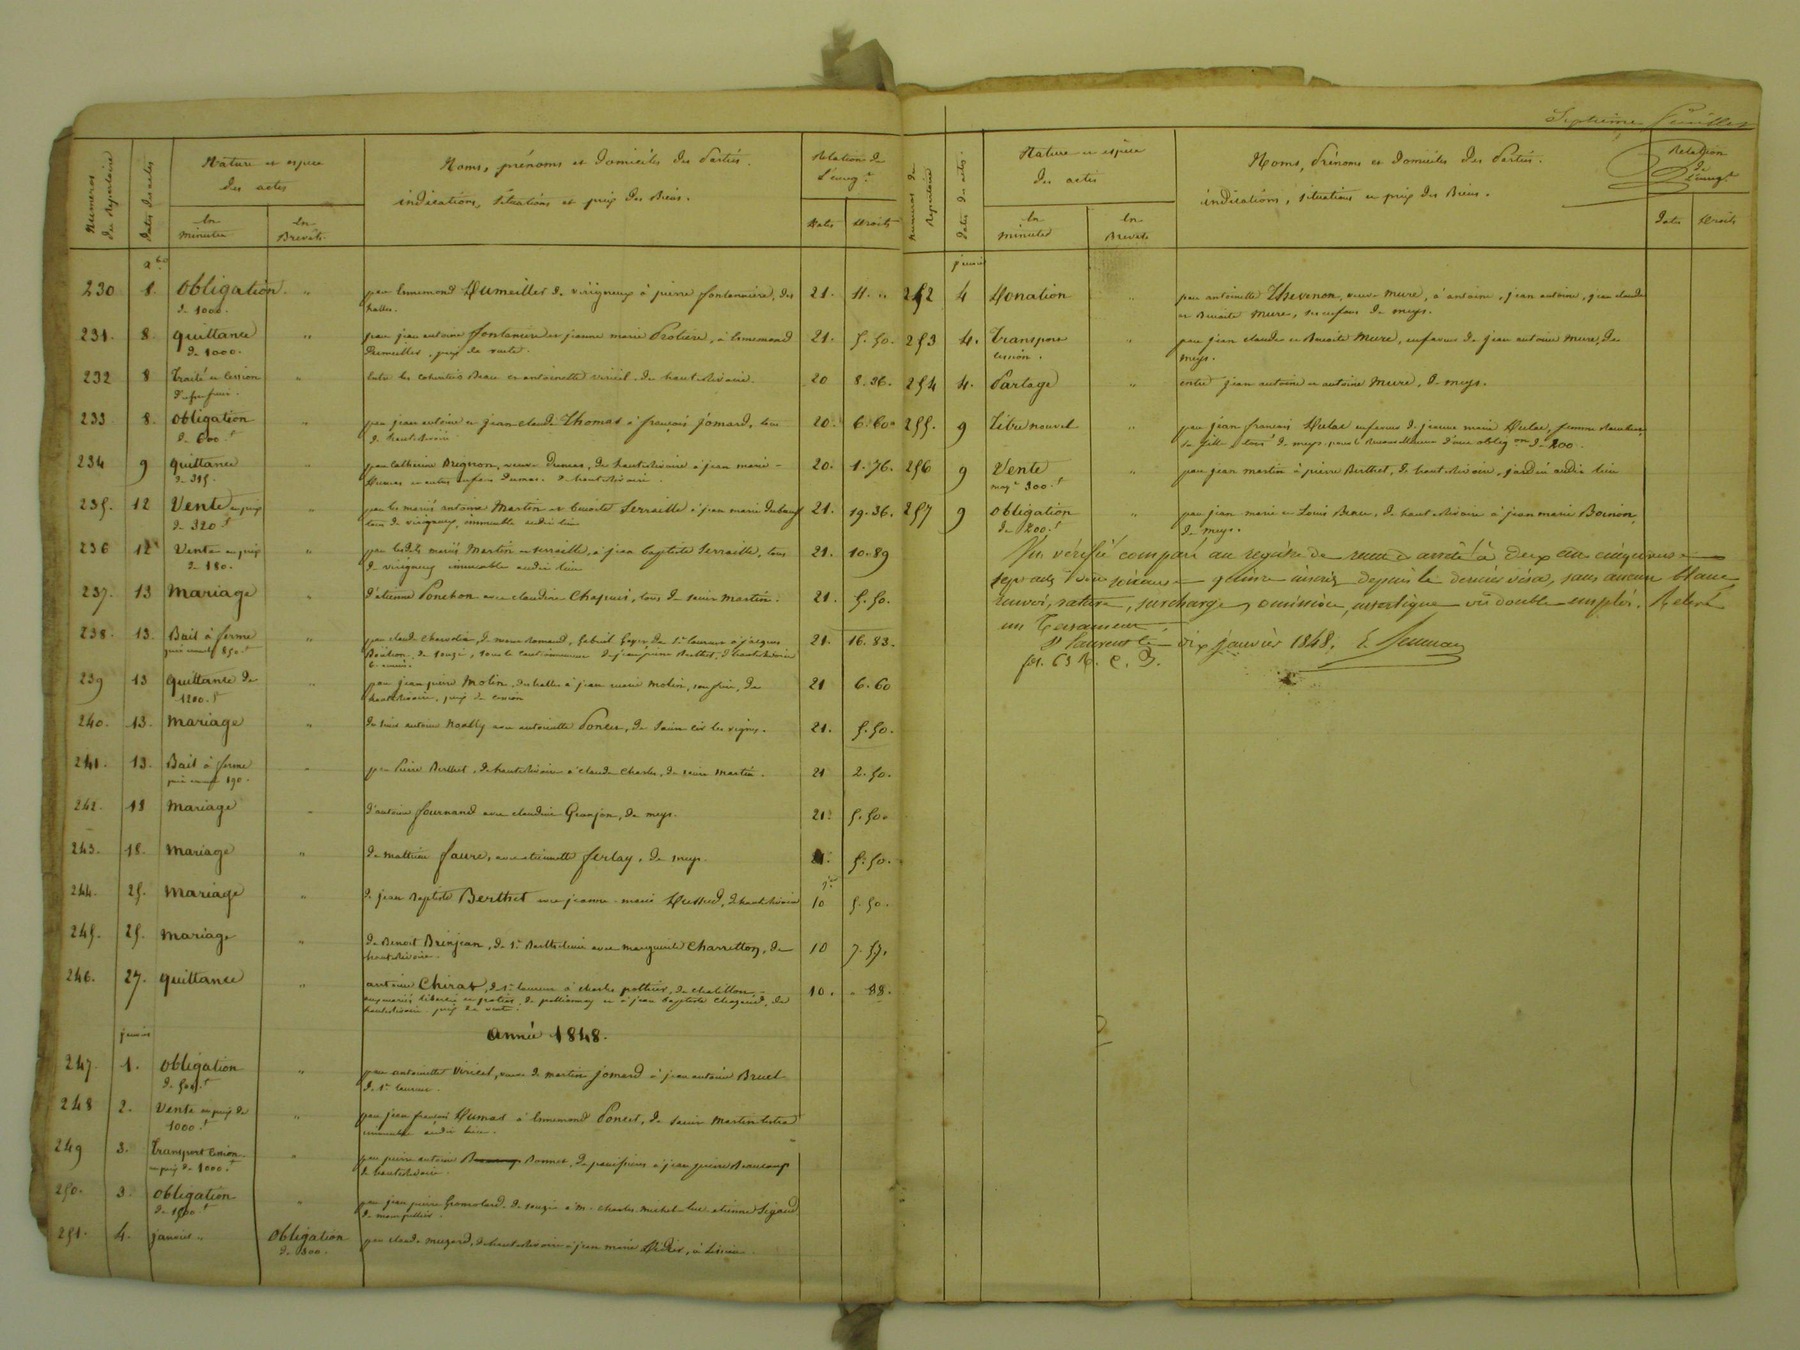 Numéros du Répertoire
Dates des actes
Nature et espèce des actes
En minutes
En Brevets
Noms, prénoms et domiciles des Parties.
indications, situations et prix des Biens.
Relation de l'enreg.t
Dates
Droits
230 8 Obligation de 1000. " par Ennemond Dumeillet de virigneux à pierre fontannière, des 21. 11. "
halles.
231. 8. quittance de 1000. " par jean antoine fontanière et jeanne marie Protière, à Ennemond 21. 5.50.
Dumeillet, prix de vente.
232 8 Traité et Cession " Entre les cohéritiers Beau et antoinette viricel, de hauterivoire. 20 8.36.
233 8. Obligation de 600.f " par jean antoine et jean claude Thomas à françois Jomard, tous 20. 6.60
de hauterivoire
234 9 quittance de 315. " par Catherine Bregnon, veuve Dumas, de hauterivoire à jean marie 20. 1.76.
Dumas et autres enfans Dumas. de hauterivoire.
235. 12 Vente au prix de 320.f " par les mariés antoine Martin et benoite Serraille à jean marie Dubœuf 21. 19.36.
tous de virigneux, immeuble audit lieu
236 12 Vente au prix de 180. " par lesdits mariés Martin et Serraille, à jean baptiste Serraille, tous 21. 10.89
de virigneux immeuble audit lieu
237. 13 Mariage " d'étienne Ponchon avec claudine Chapuis, tous de saint martin. 21. 5.50.
238. 13. Bail à ferme " 21. 16.83.
239 13 quittance de 1200.f " par jean pierre Molin, des halles à jean marie Molin, son frère, de 21 6.60
hauterivoire, prix de cession
240. 13. Mariage " antoinette Poncet, de Saint cir les vignes. 21. 5.50.
241. 13. Bail à ferme 190. " par Pierre Berthet, de hauterivoire à claude Charles, de saint Martin. 21 2.50.
242. 18 Mariage " d'antoine fournand avec claudine Granjon, de meys. 21. 5.50.
243. 18. Mariage " de mathieu faure, avec étiennette ferlay, de meys. 21. 5.50.
244. 25. Mariage " de jean Baptiste Berthet avec jeanne marie de hauterivoire 10 5.50.
245. 25. Mariage " de Benoit Brinjean, de St Barthelemi avec marguerite Charretton, de 10 7.57.
hauterivoire.
246. 27. quittance antoine Chirat, de St laurent à charles pottier, de chatillon, 10. " 88.
et à jean baptiste Chazaud, de
hauterivoire prix de vente.
janvier
année 1848.
247. 1. Obligation de 500.f " par antoinette Viricel, veuve de martin jomard à jean antoine Bruel
de St laurent.
248 2. Vente au prix de 1000.f " par jean françois Dumas à Ennemond Poncet, de saint Martin lestra
immeuble audit lieu.
249 3. Transport Cession au prix de 1000.f " par pierre antoine Bonnet, de panissières à jean pierre Beaucoup
de hauterivoire.
250. 3. Obligation de 1500.f " par jean pierre Gromolard de souzy à M. charles michel luc etienne Sigaud
de montpellier.
251. 4. janvier " Obligation de 300. par claude muzard, de hauterivoire à jean marie Didier, à
Septième feuillet
Numéros du Répertoire
Dates des actes.
Nature et espèce des actes
En minutes
En Brevets
Noms, Prénoms et domiciles des Parties.
indications, situations et prix des Biens.
Relation de l'enreg.t
Dates
Droits
janvier
252 4 Donation " par antoinette Thevenon, veuve Mure, à antoine, jean antoine, jean claude
et Benoite Mure, ses enfans de meys.
253 4. Transport cession. " par jean claude et Benoite Mure, enfans de jean antoine Mure, de
meys.
254 4. Partage " entre jean antoine et antoine Mure, de meys.
255. 9 Titre nouvel " par jean françois
d'une oblig.on de 200.
256 9 Vente moy.t 300.f " par jean martin à pierre Berthet, de hauterivoire, jardin audit lieu
257 9 Obligation de 200.f " par jean marie et Louis Beau, de hauterivoire à jean marie Boinon,
de meys.
Vu, vérifié comparé au registre de recette arrêté à deux cent cinquante
sept actes dont soixante quinze inscrits depuis le dernier visa, sans aucun blanc,
renvoi, rature, surcharge, omission, intervalle ni double emploi. Relevé
un Testament
St Laurent le dix janvier 1848.